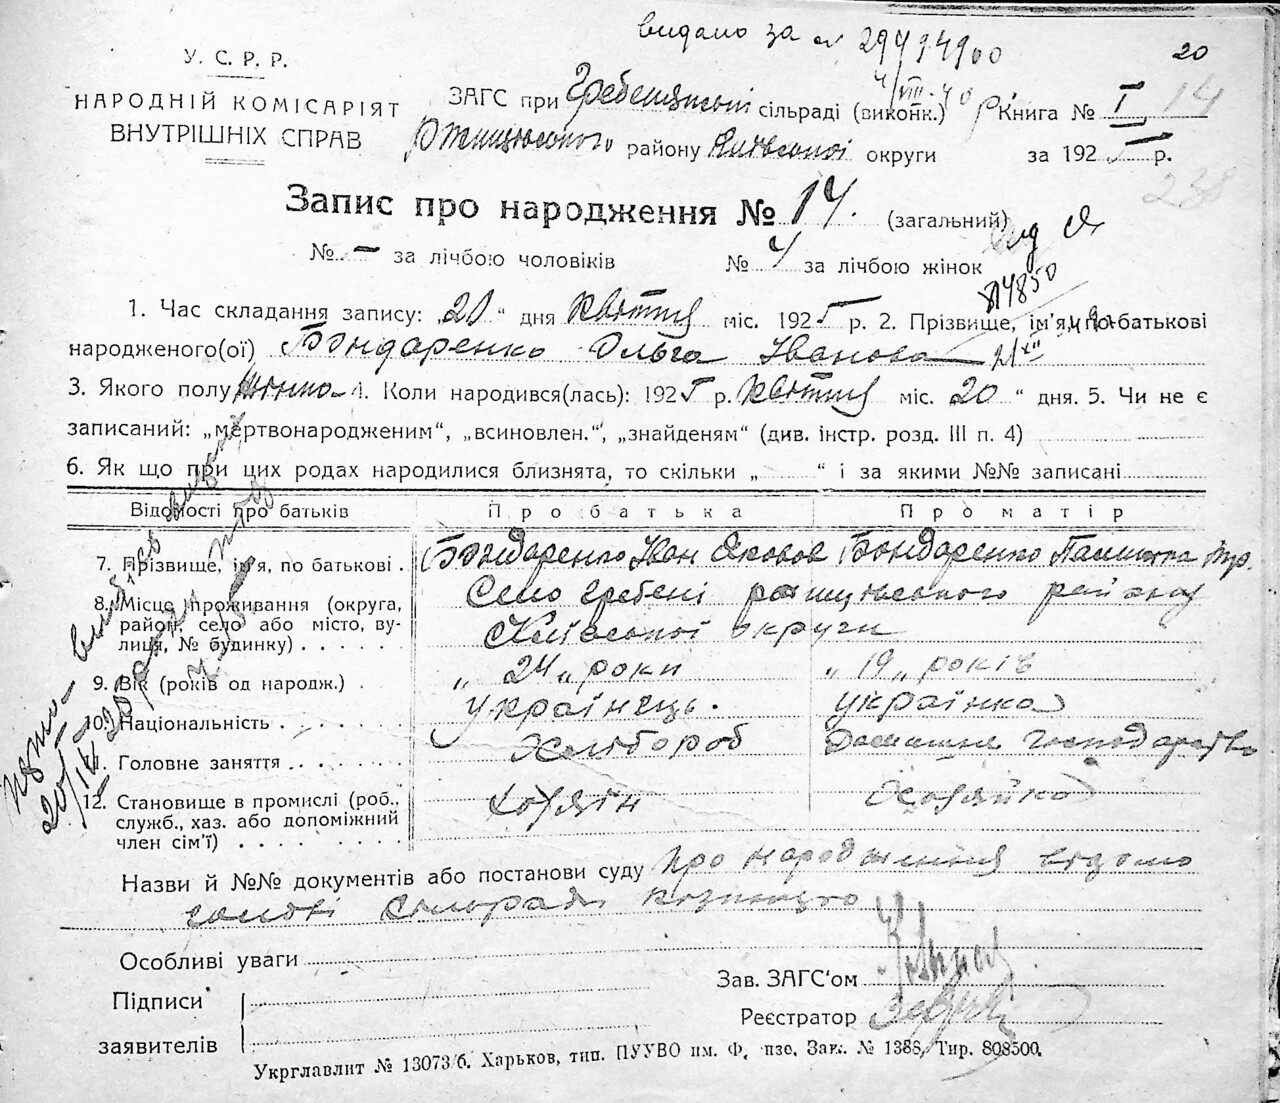 видано за № 29494900
20
У. С. Р. Р.
НАРОДНІЙ КОМІСАРІЯТ
ВНУТРІШНІХ СПРАВ
ЗАГС при Гребенянської сільраді (виконк.) Книга № I 14
4/VIII-40
Ржищівського району Київської округи за 1925 р.
238
Запис про народження № 14. (загальний)
№ – за лічбою чоловіків № 4 за лічбою жінок
14850
1. Час складання запису: „20“ дня квітня міс. 1925 р. 2. Прізвище, ім'я, по-батькові
народженого(ої) Бондаренко Ольга Іванова
3. Якого полу жіноч. 4. Коли народився(лась): 1925 р. квітня міс. 20 “ дня. 5. Чи не є
записаний: „мертвонародженим“, „всиновлен.“, „знайденям“ (див. інстр. розд. III п. 4)
6. Як що при цих родах народилися близнята, то скільки „ “ і за якими №№ записані
Відомості про батьків Про батька Про матір
7. Прізвище, ім'я, по батькові . Бондаренко Іван Яковов Бондаренко
8. Місце проживання (округа, район, село або місто, вулиця, № будинку) . . . . . . Село Гребені ржищівського району
Київської округи
9. Вік (років од народж.) . „24„ роки „19„ років
10. Національність . . . . . українець. українка
11. Головне заняття . . . . . хлібороб домашнє господарство
12. Становище в промислі (роб., служб., хаз. або допоміжний член сім'ї) . . . . . . . хазяїн хазяйка
Назви й №№ документів або постанови суду про народження відомо
голові сільради
Особливі уваги
Зав. ЗАГС'ом
Підписи
Реєстратор
заявителів
Укрглавлит № 13073/б. Харьков, тип. ПУУВО им. Ф. нзе. Зак. № 1388. Тир. 808500.